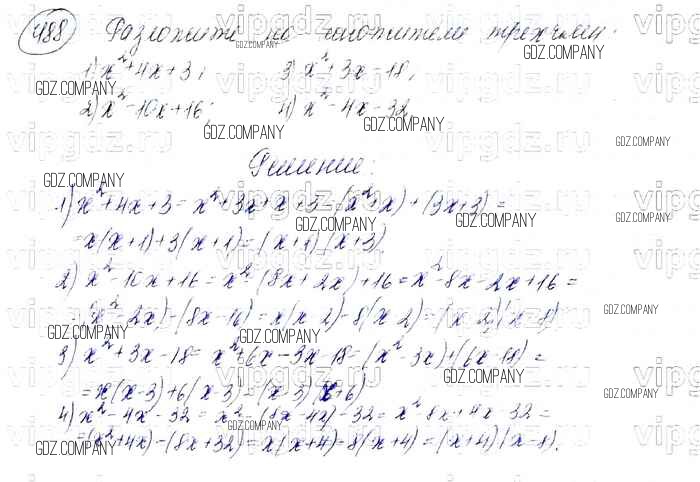 488 Разложите на множители трёхчлен:
1) x²+4x+3; 3) x²+3x-18;
2) x²-10x+16; 4) x²-4x-32.
Решение:
1) x²+4x+3 = x²+3x+x+3 = (x²+x)+(3x+3) =
= x(x+1)+3(x+1) = (x+1)(x+3)
2) x²-10x+16 = x²-(8x+2x)+16 = x²-8x-2x+16 =
= (x²-2x)-(8x-16) = x(x-2)-8(x-2) = (x-2)(x-8)
3) x²+3x-18 = x²+6x-3x-18 = (x²-3x)+(6x-18) =
= x(x-3)+6(x-3) = (x-3)(x+6)
4) x²-4x-32 = x²-(8x-4x)-32 = x²-8x+4x-32 =
= (x²+4x)-(8x+32) = x(x+4)-8(x+4) = (x+4)(x-8).
vipgdz.ru
GDZ.COMPANY